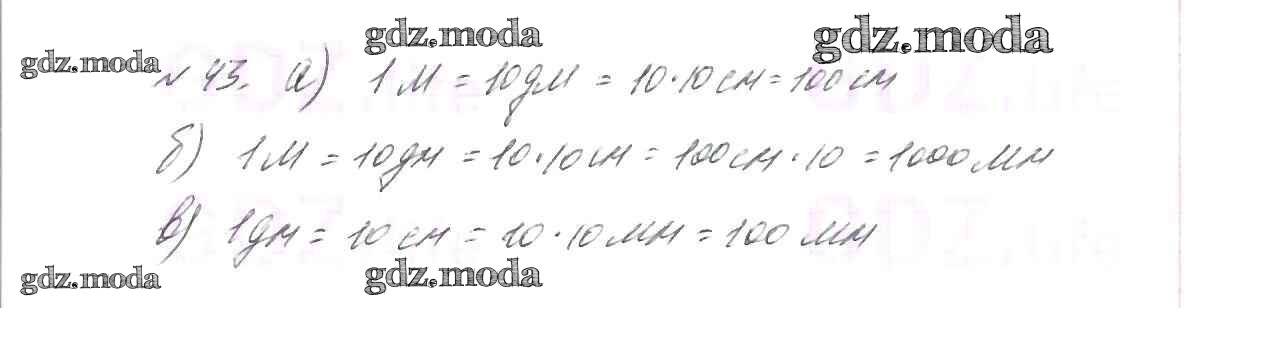 gdz.moda gdz.moda gdz.moda
№ 43. а) 1 м = 10 дм = 10·10 см = 100 см
б) 1 м = 10 дм = 10·10 см = 100 см·10 = 1000 мм
в) 1 дм = 10 см = 10·10 мм = 100 мм
gdz.moda gdz.moda